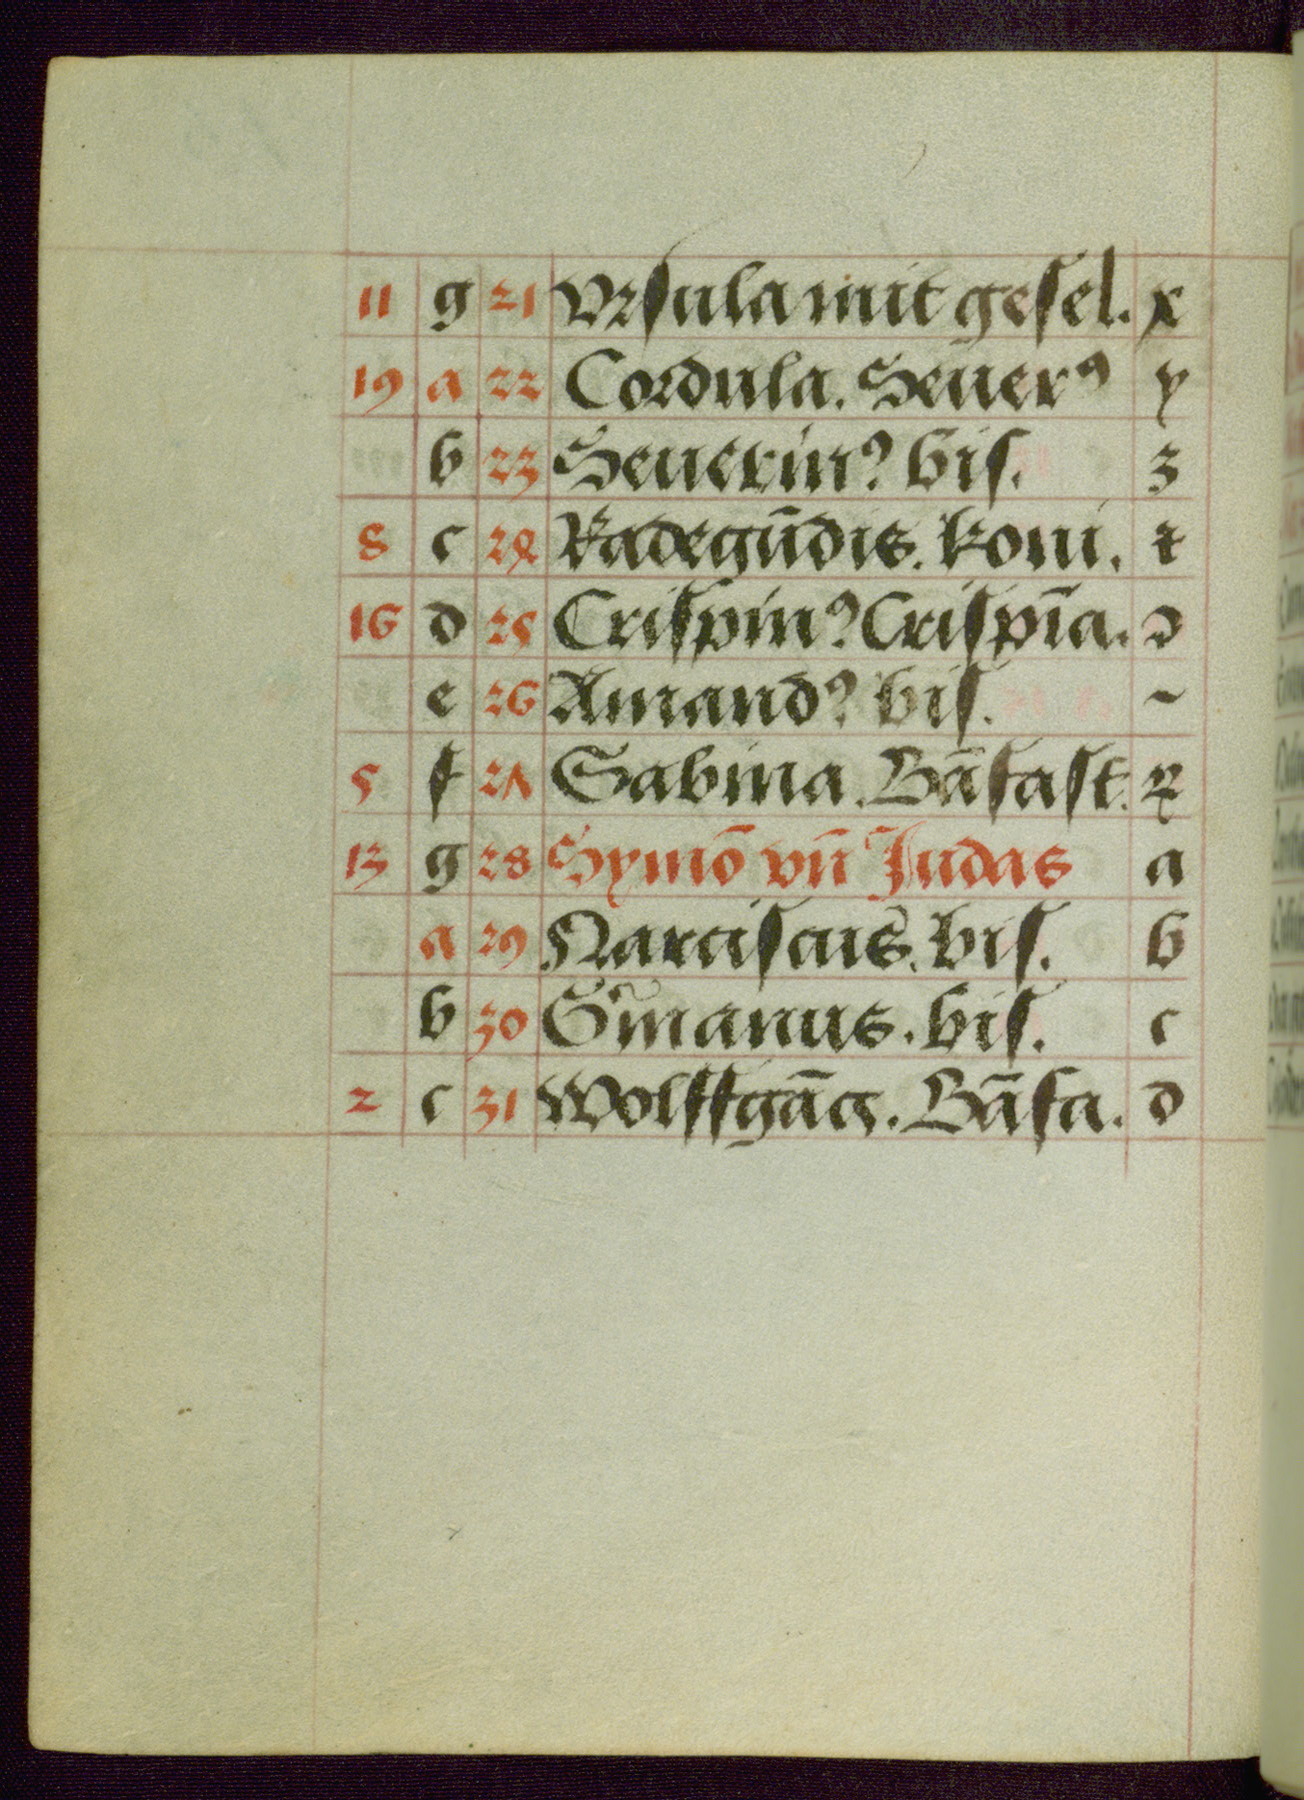 11 g 21 Vrsula mit gesel. x
19 a 22 Cordula. Seuerꝰ y
b 23 Seuerinꝰ bis. z
8 c 24 Radegūdis. koni. ꝛ
16 d 25 Crispinꝰ Crispīa. ꝯ
e 26 Amandꝰ bis. ~
5 f 27 Sabina. Bāfast.
13 g 28 Symō vn̄ Judas a
a 29 Narciscus. bis. b
b 30 G͛manus. bis. c
2 c 31 Wolffgāg. Bāfa. d